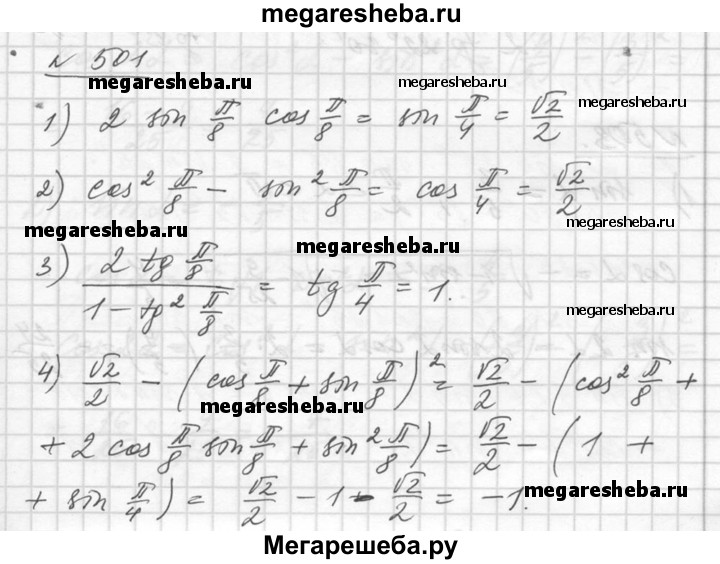 megaresheba.ru
N 501
megaresheba.ru
megaresheba.ru
megaresheba.ru
1) 2 sin π/8 cos π/8 = sin π/4 = √2/2
2) cos² π/8 - sin² π/8 = cos π/4 = √2/2
megaresheba.ru
megaresheba.ru
megaresheba.ru
3) 2 tg π/8 / 1 - tg² π/8 = tg π/4 = 1.
megaresheba.ru
4) √2/2 - (cos π/8 + sin π/8)² = √2/2 - (cos² π/8 +
megaresheba.ru
+ 2 cos π/8 sin π/8 + sin² π/8) = √2/2 - (1 +
+ sin π/4) = √2/2 - 1 - √2/2 = -1.
megaresheba.ru
Мегарешеба.ру